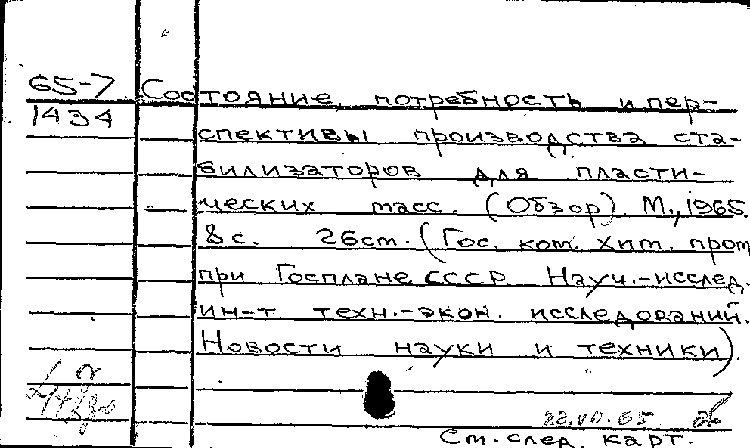 65-7 Состояние, потребность и пер-
1434
спективы производства ста-
билизаторов для пласти-
ческих масс. (Обзор). М., 1965.
8 с. 26 см. (Гос. ком. хим. пром
при Госплане СССР. Науч.-исслед.
ин-т техн.-экон. исследований.
Новости науки и техники).
22.VII.65
См. след. карт.